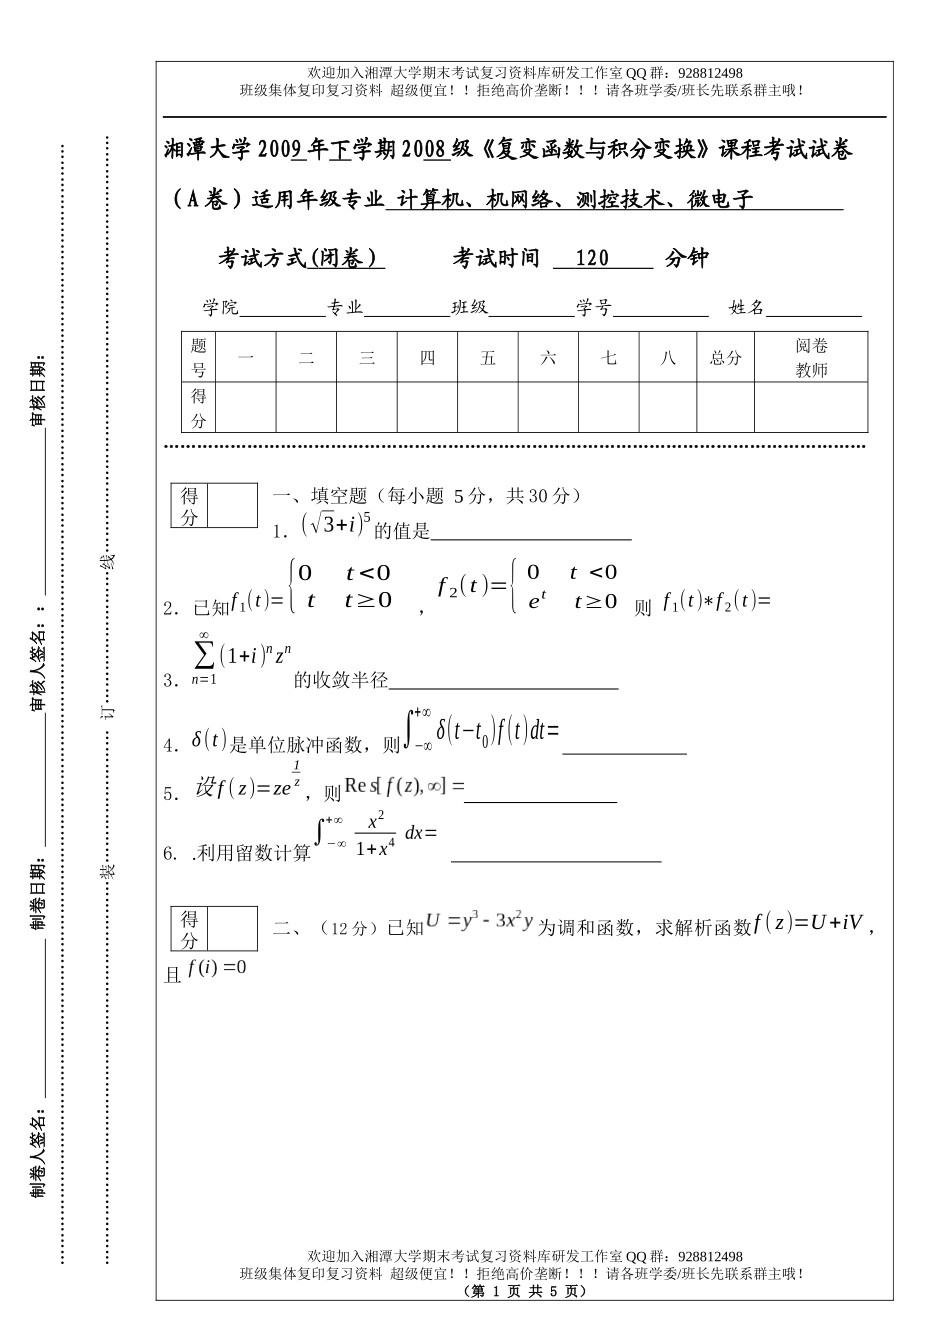 欢迎加入湘潭大学期末考试复习资料库研发工作室 QQ 群：928812498
班级集体复印复习资料 超级便宜！！拒绝高价垄断！！！请各班学委/班长先联系群主哦！
湘潭大学 2009 年下学期 2008 级《复变函数与积分变换》课程考试试卷
（A 卷）适用年级专业 计算机、机网络、测控技术、微电子
考试方式(闭卷) 考试时间 120 分钟
学院 专业 班级 学号 姓名
题号 一 二 三 四 五 六 七 八 总分 阅卷教师
得分
得分
一、填空题（每小题 5 分，共 30 分）
1．(√3+i)^5 的值是
2．已知 f₁(t)={0 t<0 t t≥0 ，f₂(t)={0 t<0 e^t t≥0 则 f₁(t)∗f₂(t)=
3．∑_{n=1}^{∞}(1+i)^n z^n 的收敛半径
4．δ(t)是单位脉冲函数，则∫_{−∞}^{+∞}δ(t−t₀)f(t)dt=
5．设f(z)=ze^{1/z}，则 Res[f(z),∞]=
6. .利用留数计算∫_{−∞}^{+∞} x²/(1+x⁴) dx=
得分
二、（12 分）已知 U=y³-3x²y 为调和函数，求解析函数 f(z)=U+iV，
且 f(i)=0
欢迎加入湘潭大学期末考试复习资料库研发工作室 QQ 群：928812498
班级集体复印复习资料 超级便宜！！拒绝高价垄断！！！请各班学委/班长先联系群主哦！
（第 1 页 共 5 页）
制卷人签名： 制卷日期： 审核人签名：： 审核日期：
装 订 线